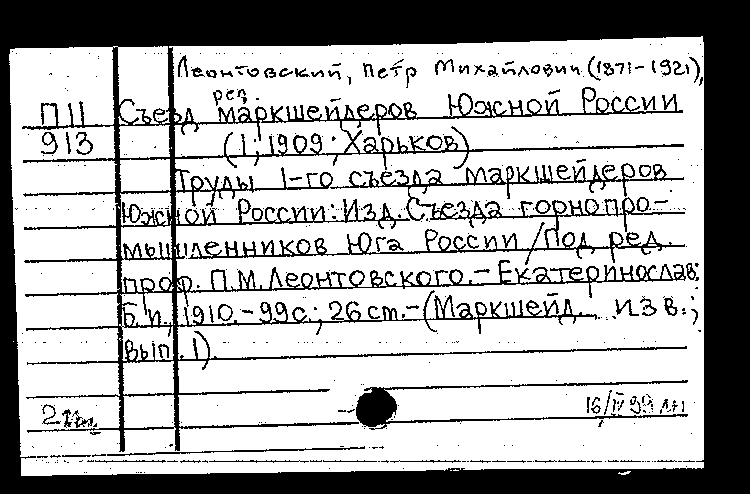 Леонтовский, Петр Михайлович (1871-1921),
ред.
П11 Съезд маркшейдеров Южной России
913 (1; 1909; Харьков)
Труды 1-го съезда маркшейдеров
Южной России: Изд. Съезда горнопро-
мышленников Юга России / Под ред.
проф. П.М. Леонтовского. - Екатеринослав:
Б.и., 1910. - 99с.; 26 cm. - (Маркшейд. изв.;
вып. 1).
16/IV 99